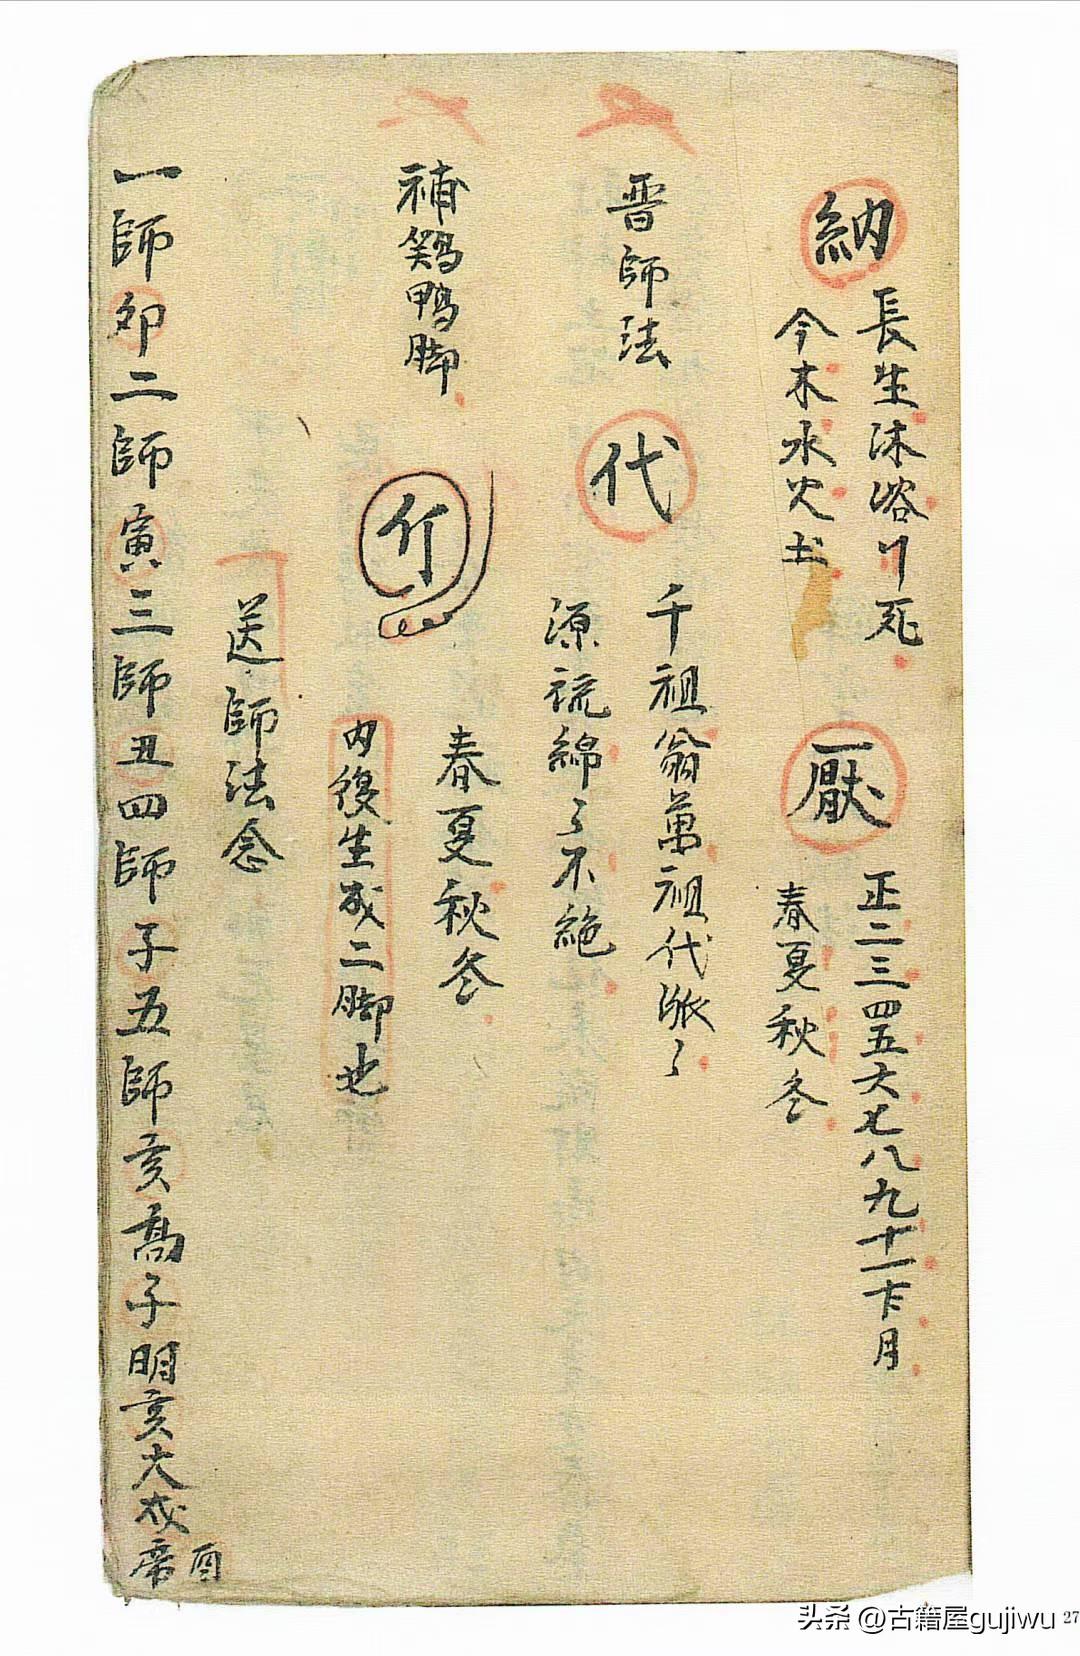 納
長生沐浴卩死
今木水火土
厭
正二三四五六七八九十一十二月
春夏秋冬
晋師法
代
千祖翁萬祖代派々
源流綿々不絶
補鷄鴨脚
春夏秋冬
内後生成二脚也
送師法念
一師卯二師寅三師丑四師子五師亥高子明亥大戍席酉
头条 @古籍屋gujiwu
27